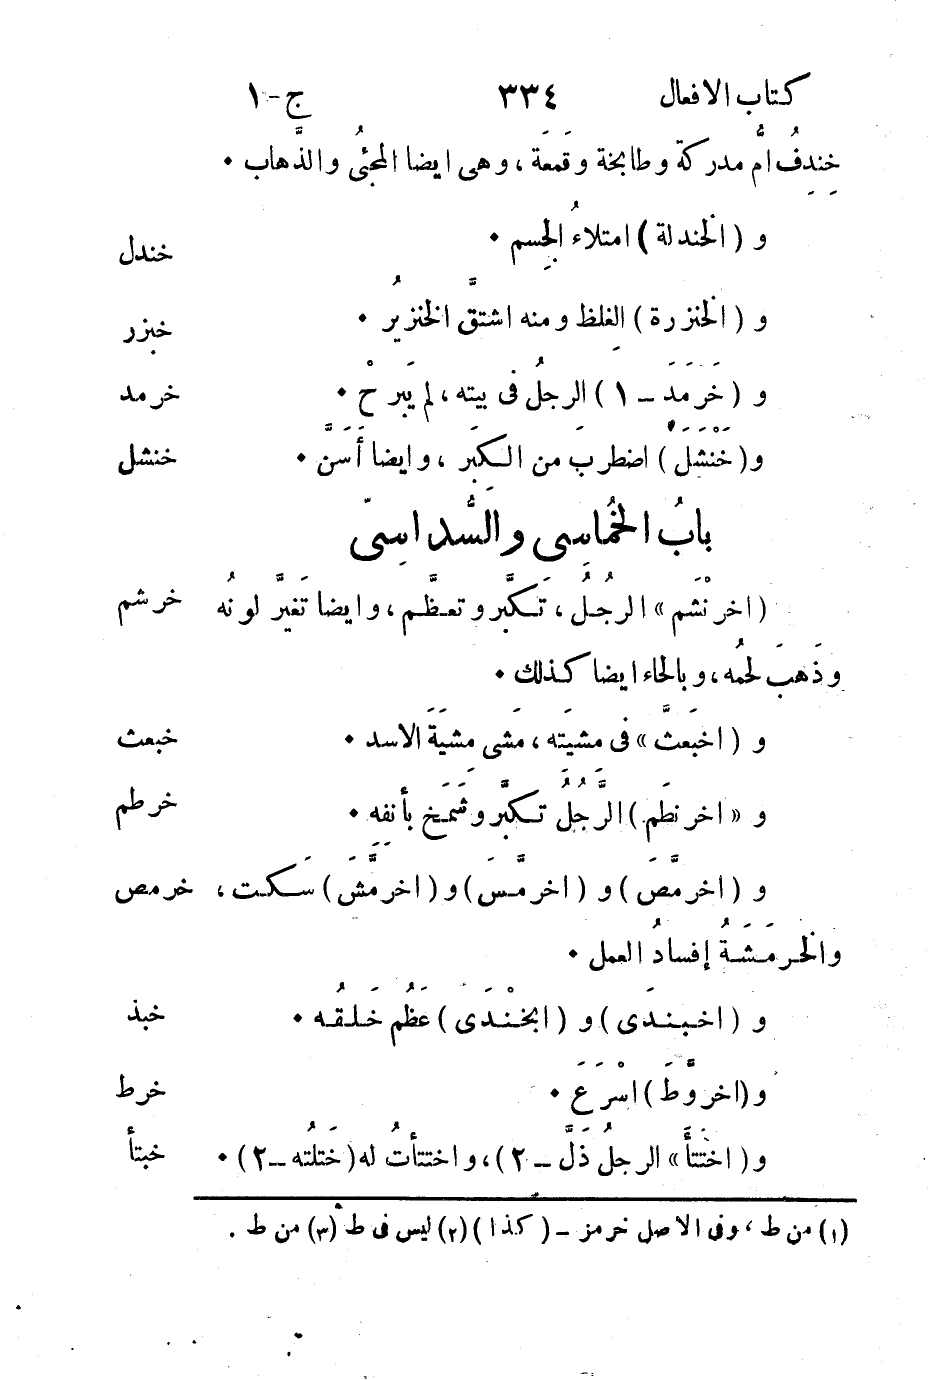 كتاب الافعال ٣٣٤ ج-١
خِندِفُ امُّ مدركة وطابخة وقمَعَة ، وهى ايضا المجئُ والذَّهاب •
و ( الخندلة ) امتلاءُ الجِسم • خندل
و ( الخنزرة ) الغِلظ ومنه اشتقَّ الخنزيرُ • خبزر
و ( خَرمَدَ – ١ ) الرجلُ فى بيته ، لم يَبرحْ • خرمد
و ( خَنْشَلَ ) اضطربَ من الكِبَر ، وايضا أَسَنَّ • خنشل
بابُ الخُماسِى والسُّداسِىّ
( اخرنْشَم » الرجُلُ ، تكَبَّر وتعظَّم ، وايضا تَغيَّر لونُه خرشم
وذَهبَ لحمُه ، وبالحاء ايضا كذلك •
و ( اخبَعثَّ » فى مشيَته ، مَشى مِشيَةَ الاسد • خبعث
و « اخرنطَم ) الرَّجُلُ تكبَّر وشَمَخ بأنفِهِ • خرطم
و ( اخرمَّصَ ) و ( اخرمَّسَ ) و ( اخرمَّشَ ) سَكت ، خرمص
والخرمَشَةُ إفسادُ العمل •
و ( اخبندَى ) و ( ابخْنَدَى ) عَظُم خَلقُه • خبذ
و ( اخروَّطَ ) اسْرَعَ • خرط
و ( اختَتأَ » الرجلُ ذَلَّ – ٢ ) ، واختتأتُ له ( خَتلتُه – ٢ ) • خبتأ
(١) من ط ، وفى الاصل خرمز – ( كذا ) (٢) ليس فى ط (٣) من ط .